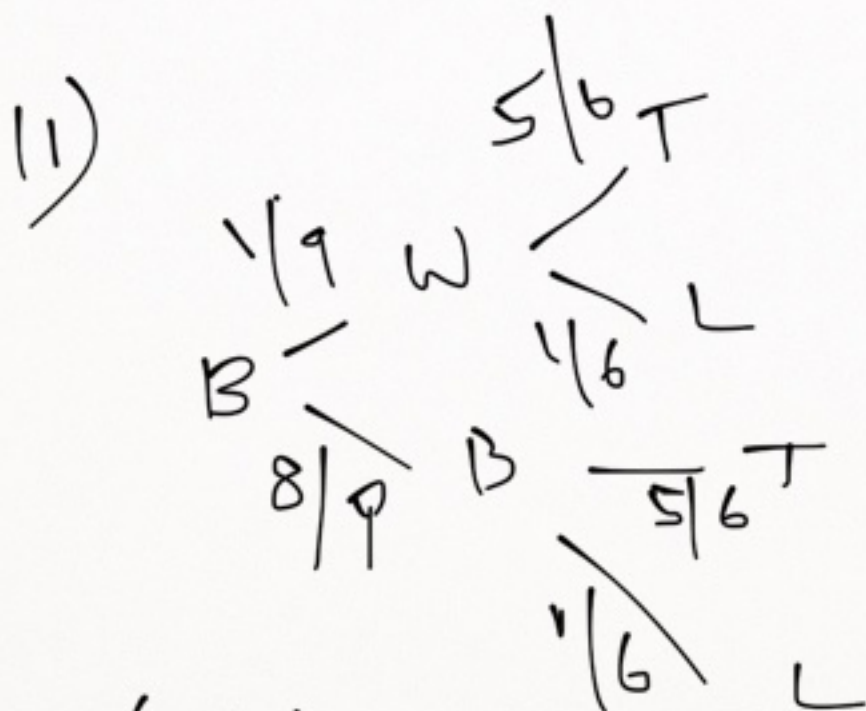 (1)
5/6 T
1/9 W
1/6 L
B
8/9 B 5/6 T
1/6 L